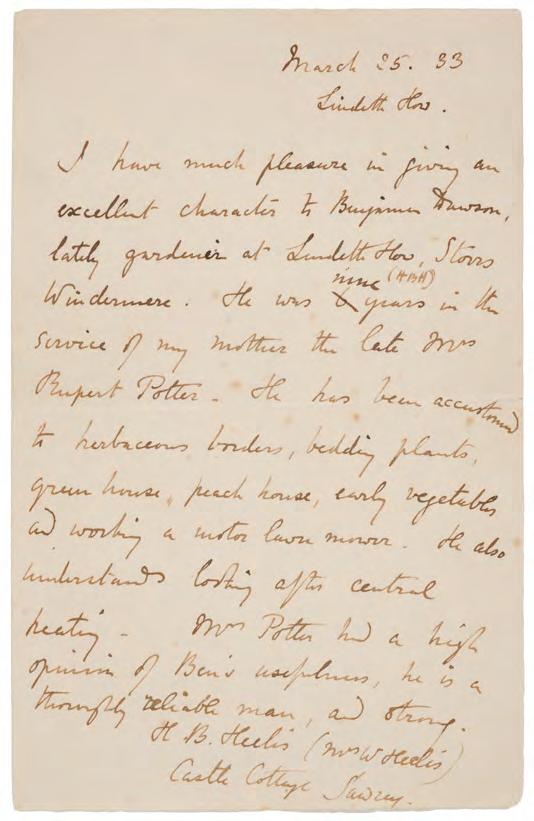 March 25. 33
Lindeth How.
I have much pleasure in giving an
excellent character to Benjamin Dawson,
lately gardener at Lindeth How, Storrs
nine (HBH)
Windermere. He was 6 years in the
service of my mother the late Mrs
Rupert Potter. He has been accustomed
to herbaceous borders, bedding plants,
green house, peach house, early vegetables
and working a motor lawn mower. He also
understands looking after central
heating. Mrs Potter had a high
opinion of Ben's usefulness, he is a
thoroughly reliable man, and strong.
H B. Heelis (Mrs W Heelis)
Castle Cottage Sawrey.